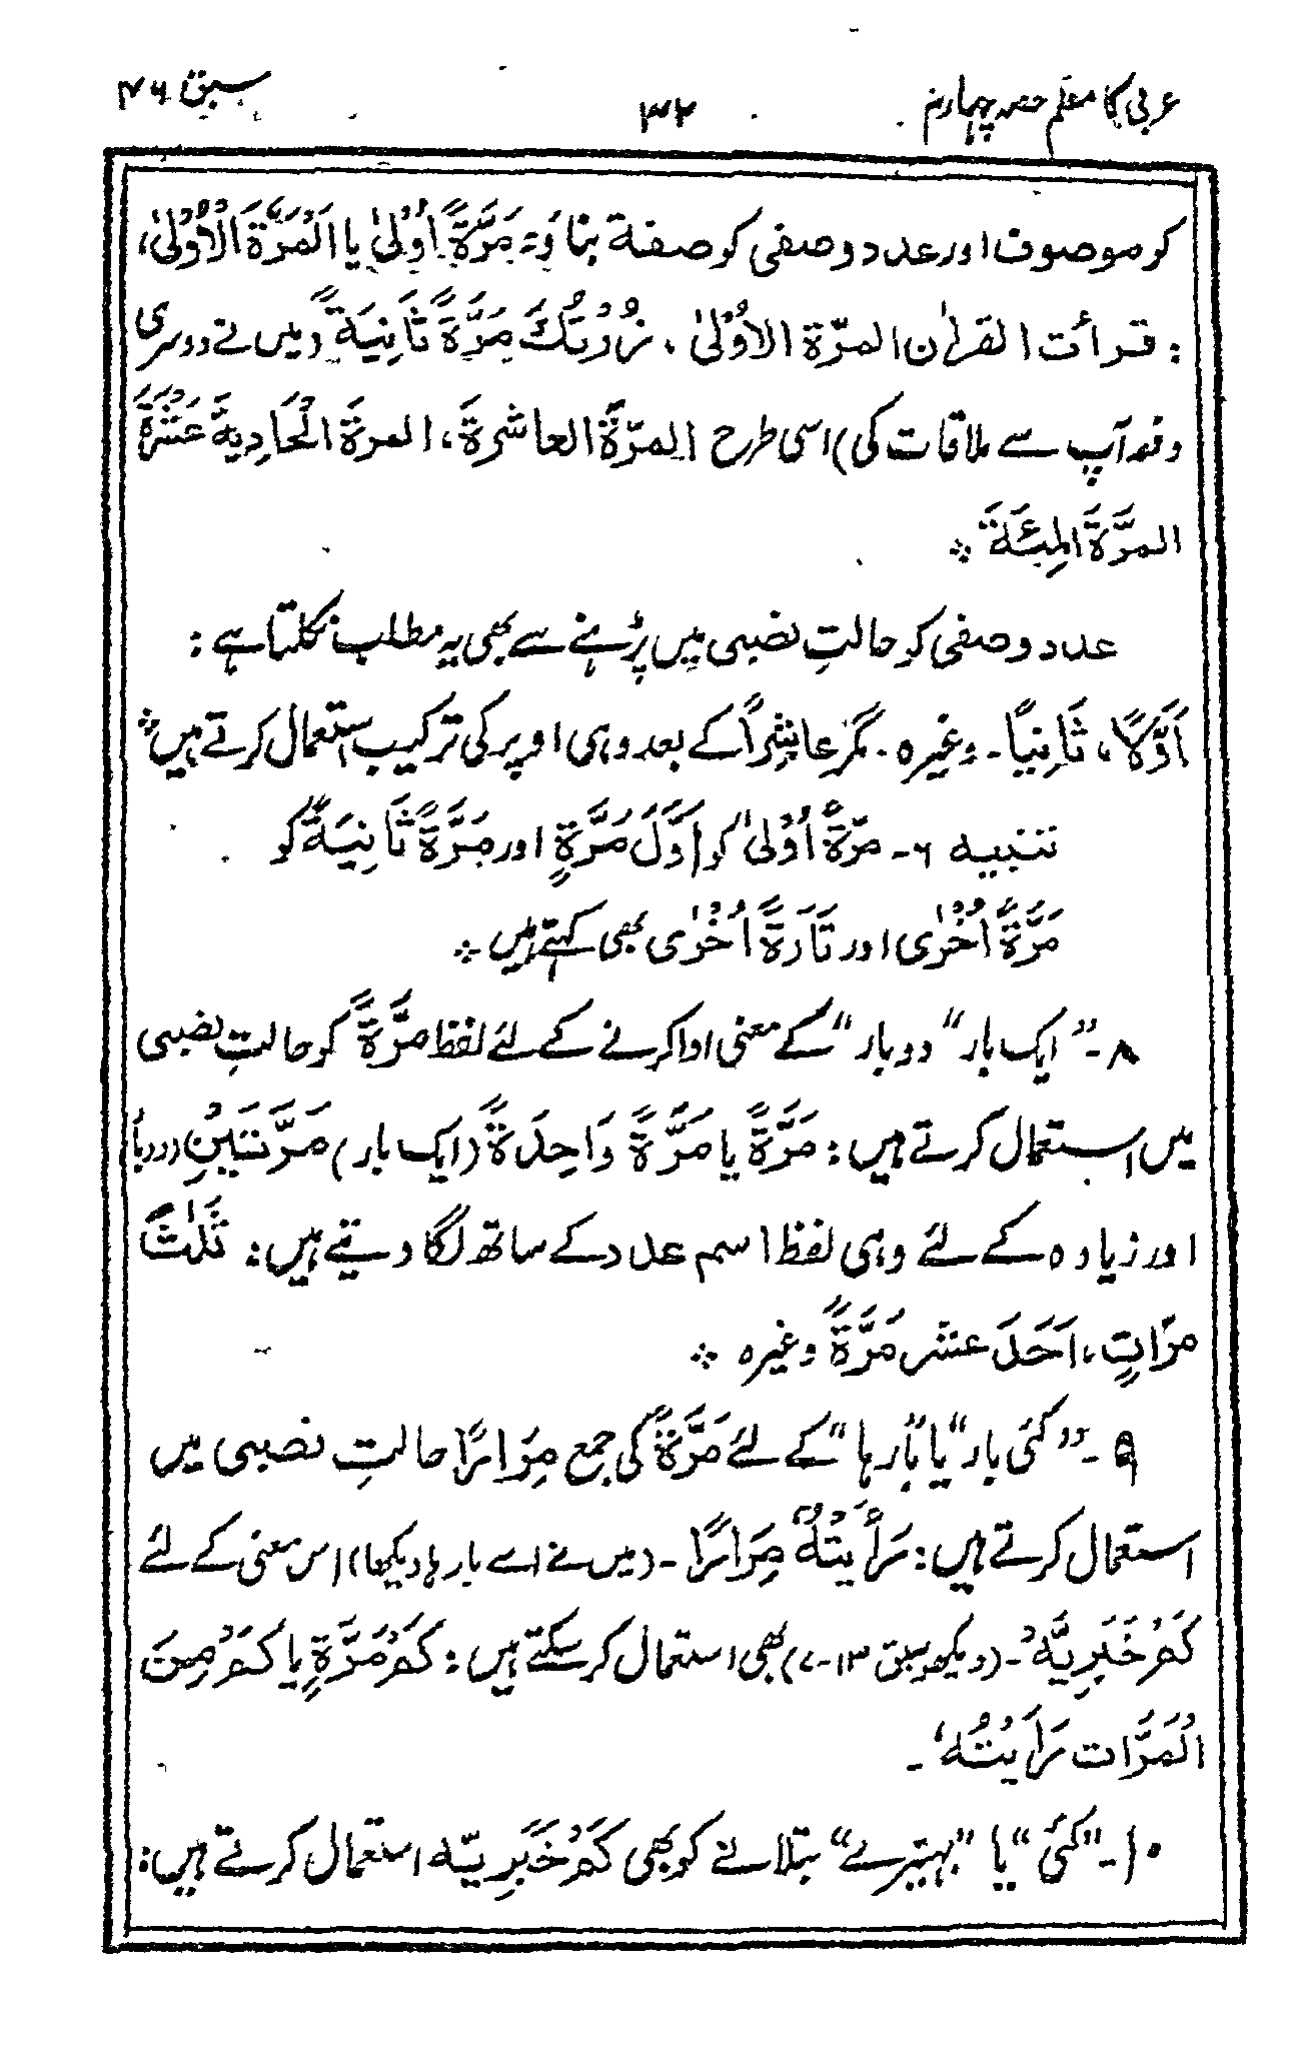 عربی کا معلم حصہ چہارم
۳۲
سبق ۴۶
کو موصوف اور عدد وصفی کو صفة بناؤ: مَرَّةً اُوْلیٰ یا اَلْمَرَّةَ الْاُوْلیٰ،
: قرأت القراٰن المرّة الاُوْلیٰ، زُرْتُكَ مَرَّةً ثَانِیَةً (میں نے دوسری
دفعہ آپ سے ملاقات کی) اسی طرح المرّةَ العاشرةَ، المرةَ الْحَادِیةَ عَشْرَةَ
المرَّةَ المِئَةَ ❖
عدد وصفی کو حالتِ نصبی میں پڑھنے سے بھی یہ مطلب نکلتا ہے:
اَوَّلًا، ثَانِیاً۔ وغیرہ۔ مگر عاشِراً کے بعد وہی اوپر کی ترکیب استعمال کرتے ہیں ❖
تنبیہ ۶۔ مرّةً اُوْلیٰ کو اَوَّلَ مَرَّةٍ اور مَرَّةً ثَانِیَةً کو
مَرَّةً اُخْرٰی اور تَارَةً اُخْرٰی بھی کہتے ہیں ❖
۸۔ ”ایک بار“ ”دو بار“ کے معنی ادا کرنے کے لئے لفظ مرَّةً کو حالتِ نصبی
میں استعمال کرتے ہیں: مَرَّةً یا مَرَّةً وَاحِدَةً (ایک بار) مَرَّتَیْنِ (دوبار)
اور زیادہ کے لئے وہی لفظ اسم عدد کے ساتھ لگا دیتے ہیں: ثَلٰثَ
مرّاتٍ، اَحَدَ عشَر مَرَّةً وغیرہ ❖
۹۔ ”کئی بار“ یا ”بارہا“ کے لئے مَرَّةً کی جمع مِرَارًا حالتِ نصبی میں
استعمال کرتے ہیں: رَأَیْتُهٗ مِرَارًا۔ (میں نے اسے بارہا دیکھا) اس معنی کے لئے
كَمْ خَبَرِیَّه۔ (دیکھو سبق ۱۳-۷) بھی استعمال کر سکتے ہیں: كَمْ مَرَّةٍ یا كَمْ مِنَ
الْمَرَّات رَأَیْتُهٗ۔
۱۰۔ ”کئی“ یا ”بہتیرے“ بتلانے کو بھی كَمْ خَبَرِیّه استعمال کرتے ہیں: